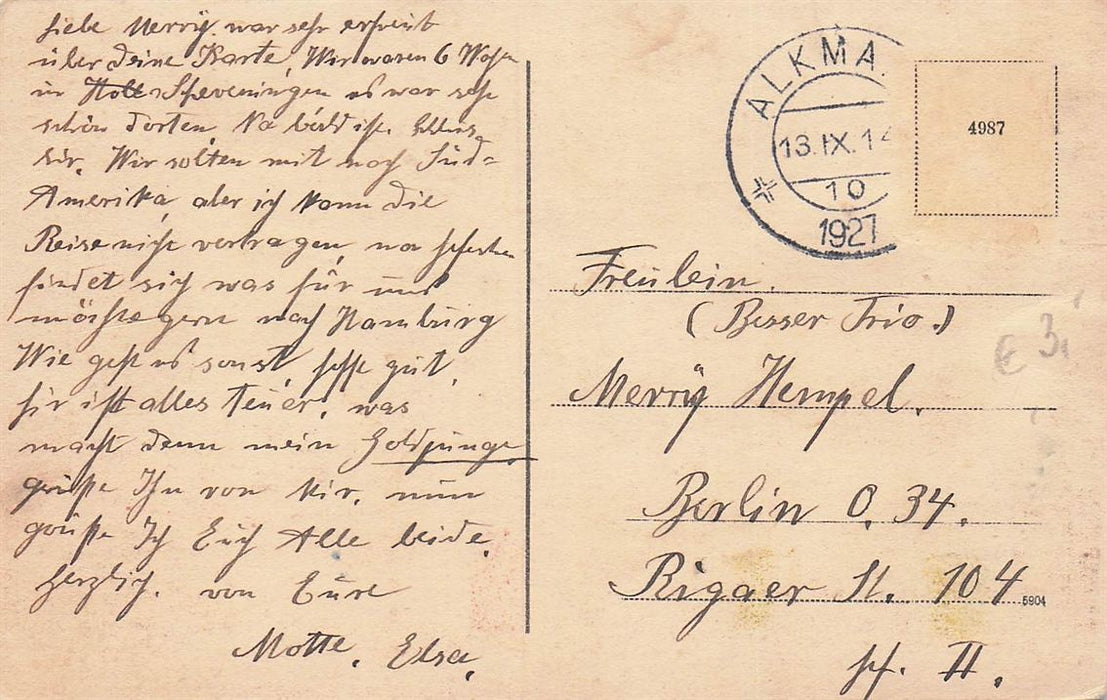 Liebe Merrÿ. war sehr erfreut
über deine Karte, Wir waren 6 Wochen
in Scheveningen es war sehr
schön dorten, Na bald ist Schluss
hir. Wir solten mit nach Süd-
Amerika, aber ich kann die
Reise nicht vertragen, na
findet sich was für uns
möchte gern nach Hamburg
Wie geht es sonst, hoffe gut,
hir ist alles teuer, was
macht denn mein Goldjunge
grüße Ihn von Mir, nun
grüße Ich Euch Alle beide,
herzlich. von Eure
Motte, Elsa,
ALKMA
13.IX.1
10
1927
4987
Freulein.
(Besser Trio.)
Merrÿ Hempel.
Berlin O. 34.
Rigaer St. 104
5904
II.
€ 3,